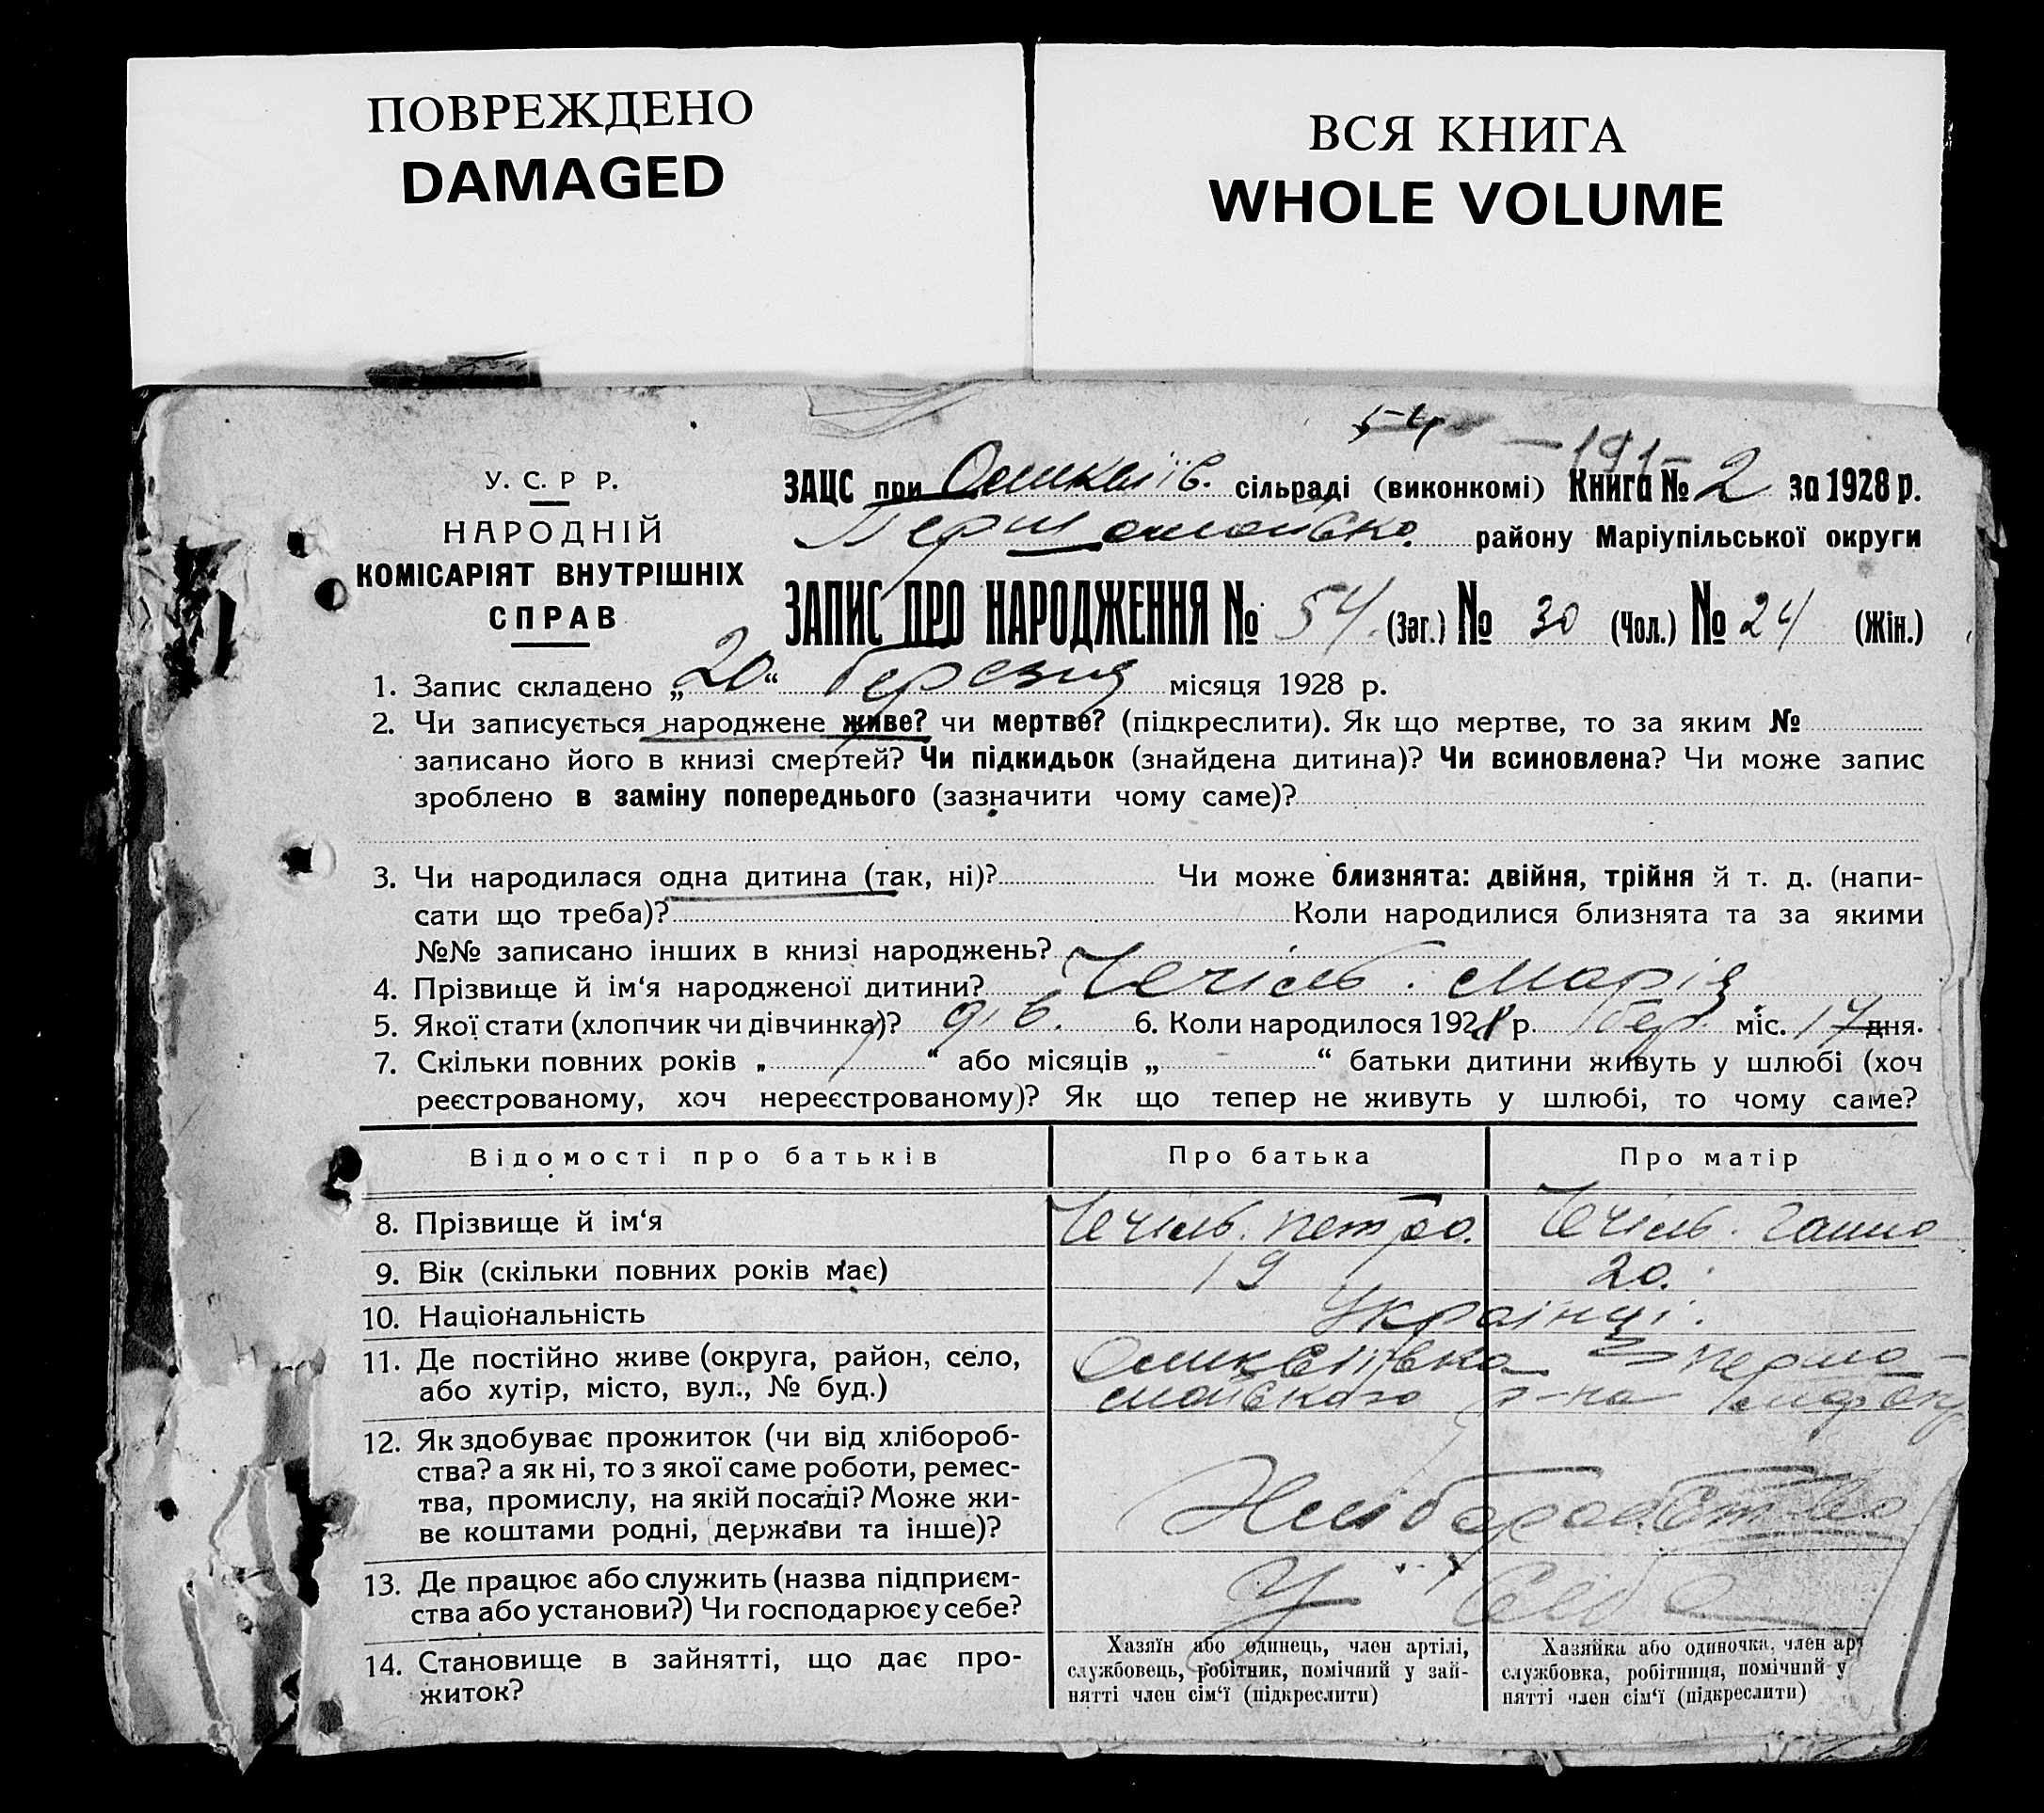 ПОВРЕЖДЕНО
DAMAGED
ВСЯ КНИГА
WHOLE VOLUME
54
-191-
У. С. Р Р.
НАРОДНІЙ
КОМІСАРІЯТ ВНУТРІШНІХ
СПРАВ
ЗАЦС при сільраді (виконкомі) Книга № 2 за 1928 р.
Першомайськ. району Маріупільської округи
ЗАПИС ПРО НАРОДЖЕННЯ № 54. (Заг.) № 30 (Чол.) № 24 (Жін.)
1. Запис складено „20“ березня місяця 1928 р.
2. Чи записується народжене живе? чи мертве? (підкреслити). Як що мертве, то за яким №
записано його в книзі смертей? Чи підкидьок (знайдена дитина)? Чи всиновлена? Чи може запис
зроблено в заміну попереднього (зазначити чому саме)?
3. Чи народилася одна дитина (так, ні)? Чи може близнята: двійня, трійня й т. д. (напи-
сати що треба)? Коли народилися близнята та за якими
№№ записано інших в книзі народжень?
4. Прізвище й ім‘я народженої дитини? Чечіль. Марія
5. Якої стати (хлопчик чи дівчинка)? дів. 6. Коли народилося 1928 р. бер. міс. 17 дня.
7. Скільки повних років „ “ або місяців „ “ батьки дитини живуть у шлюбі (хоч
реєстрованому, хоч нереєстрованому)? Як що тепер не живуть у шлюбі, то чому саме?
Відомості про батьків Про батька Про матір
8. Прізвище й ім‘я Чечіль. Петро. Чечіль. Ганна
9. Вік (скільки повних років має) 19 20.
10. Національність Українці.
11. Де постійно живе (округа, район, село, Першо-
або хутір, місто, вул., № буд.) майського р-на
12. Як здобуває прожиток (чи від хлібороб-
ства? а як ні, то з якої саме роботи, ремес-
тва, промислу, на якій посаді? Може жи- Хліборобство
ве коштами родні, держави та інше)?
13. Де працює або служить (назва підприєм- У себе
ства або установи?) Чи господарює у себе?
14. Становище в зайнятті, що дає про-
житок?
Хазяїн або одинець, член артілі,
службовець, робітник, помічний у зай-
нятті член сім‘ї (підкреслити)
Хазяйка або одиночка, член арт
службовка, робітниця, помічний у
нятті член сім‘ї (підкреслити)